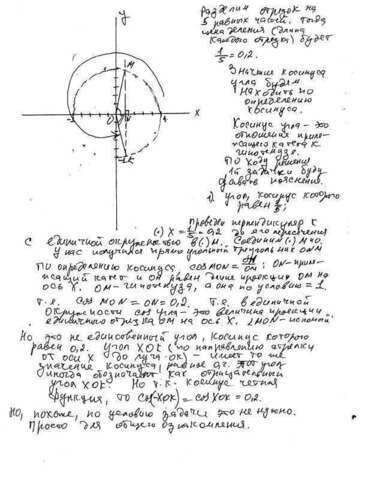 Разделим отрезок на
5 равных частей. Тогда
цена деления (длина
каждого отрезка) будет
1/5 = 0,2.
Значение косинуса
угла будем
находить по
определению
косинуса.
Косинус угла - это
отношение приле-
жащего катета к
гипотенузе.
По ходу решения
задачки буду
давать пояснения.
1) угол, косинус которого
равен 1/5.
Проведём перпендикуляр к
(·) X = 1/5 = 0,2 до его пересечения
с единичной окружностью в (·) M. Соединим (·) M и O.
У нас получился прямоугольный треугольник ONM
По определению косинуса, cos MON = ON/OM; ON - приле-
жащий катет и он равен длине проекции OM на
ось X. OM - гипотенуза, а она по условию = 1
т.е. cos MON = ON = 0,2. Т.е. в единичной
окружности cos угла - это величина проекции
единичного отрезка OM на ось X. ∠MON - искомый.
Но это не единственный угол, косинус которого
равен 0,2. Угол XOK (по направлению стрелки
от оси X до луча OK) - имеет то же
значение косинуса, равное 0,2. Этот угол
иногда обозначают как отрицательный
угол XOK. Но т.к. косинус четная
функция, то cos(-XOK) = cos XOK = 0,2.
Но, похоже, по условию задачи это не нужно.
Просто для общего ознакомления.
y
M
x
O
K